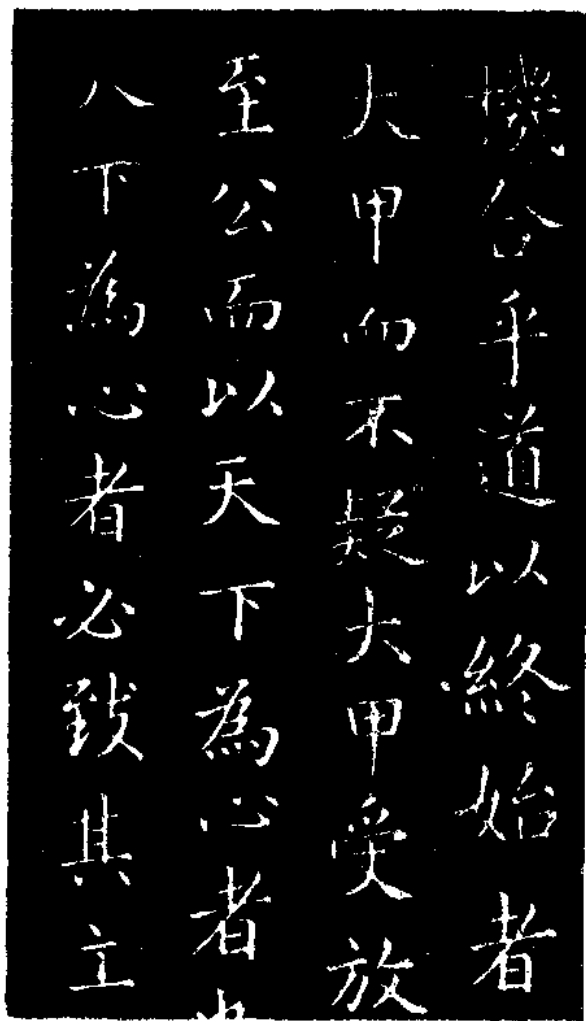 機合乎道以終始者
大甲而不疑大甲受放
至公而以天下為心者也
下為心者必致其主